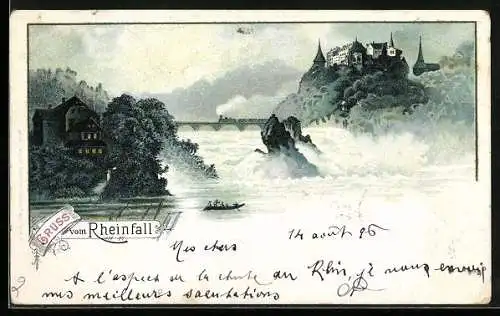 GRUSS
vom Rheinfall
Mes chers
14 août 96
A l'aspect de la chute du Rhin, je vous envoie
mes meilleurs salutations